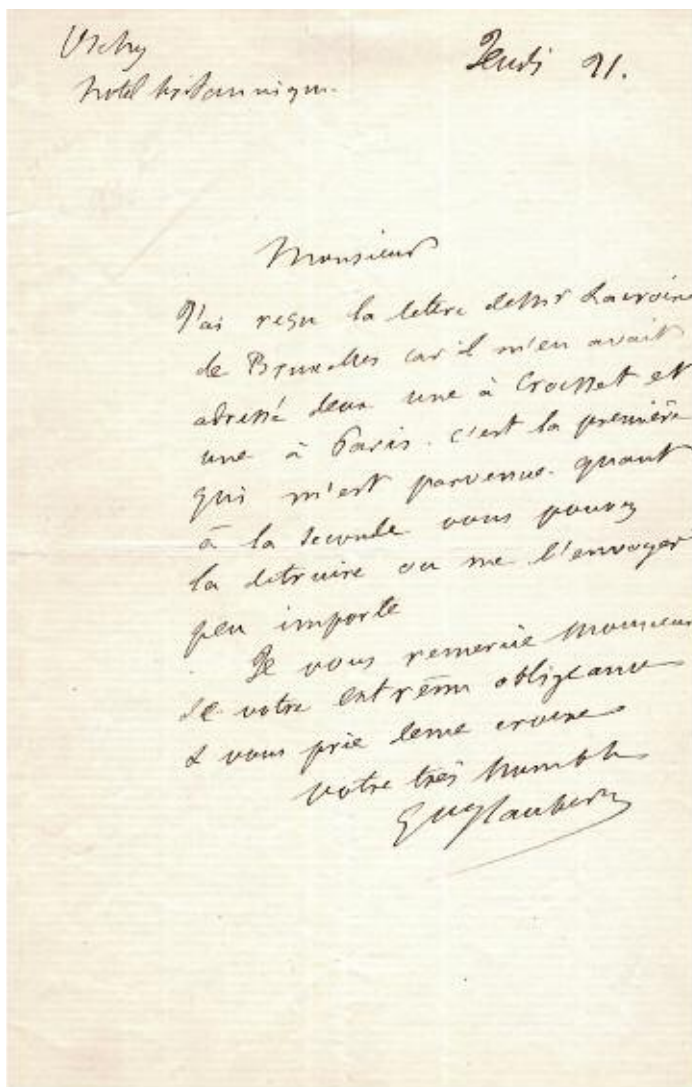 Vichy
hotel britannique.
Jeudi 21.
Monsieur
J'ai reçu la lettre de Mr Lacroix
de Bruxelles car il m'en avait
adressé deux une à Croisset et
une à Paris. c'est la première
qui m'est parvenue. quant
à la seconde vous pouvez
la detruire ou me l'envoyer
peu importe
Je vous remercie Monsieur
de votre extrême obligeance
& vous prie de me croire
votre très humble
Gve Flaubert